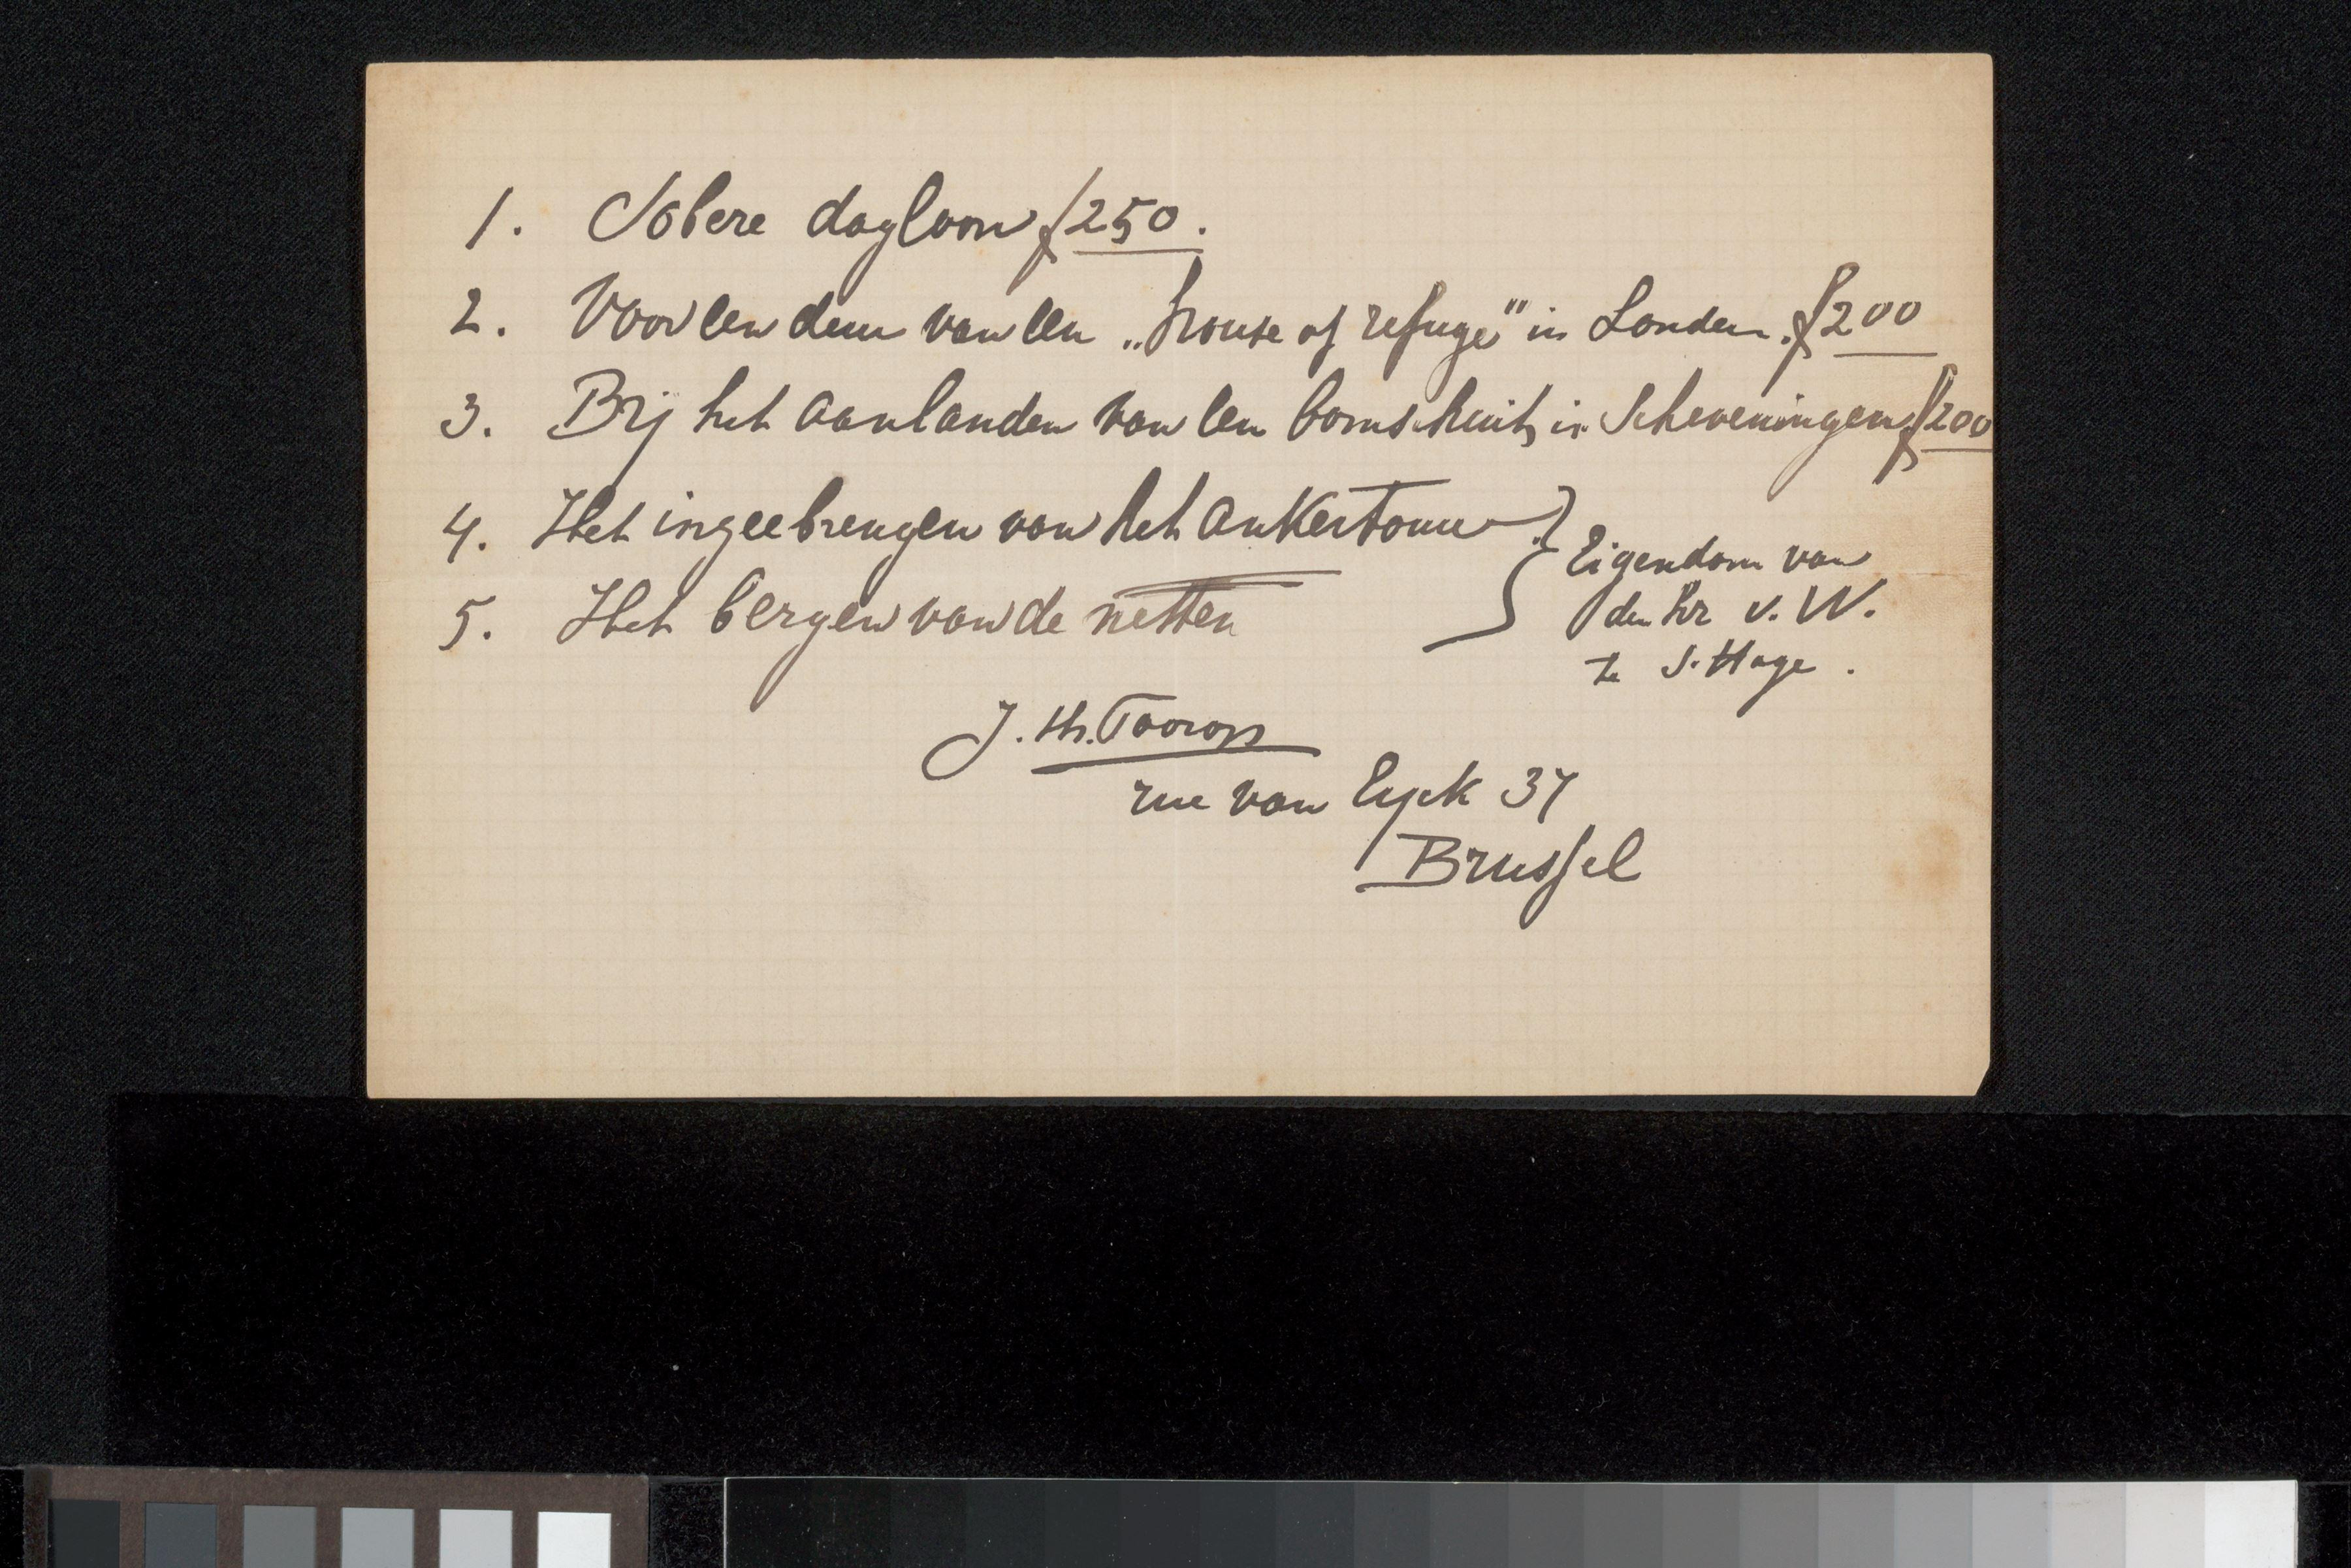 1. Sobere dagloon f 250.
2. Voor een deur van een „house of refuge" in Londen. f 200
3. Bij het aanlanden van een bomschuit, in Scheveningen f 200
4. Het ingeebrengen van het ankertouw
5. Het bergen van de netten
} Eigendom van
den hr v. W.
te S. Hage.
J. Th. Toorop
rue van Eyck 37
Brussel